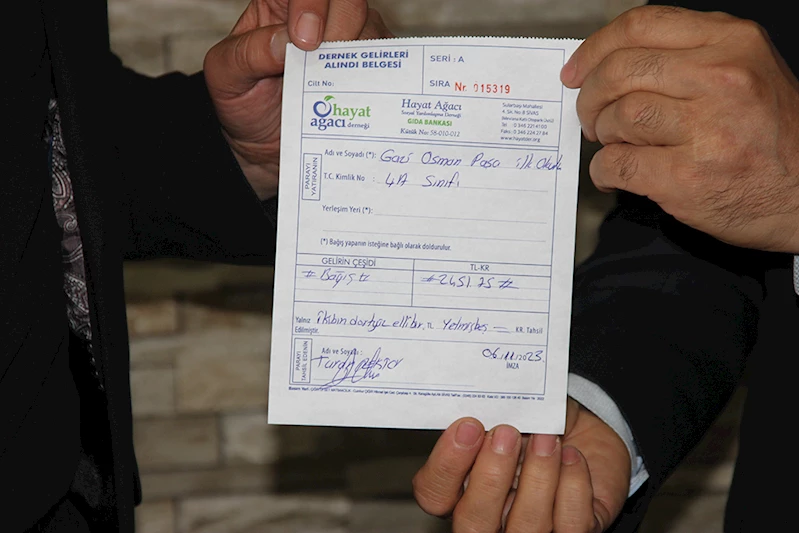 DERNEK GELİRLERİ
ALINDI BELGESİ
SERİ : A
Cilt No:
SIRA Nr. 015319
hayat
ağacı derneği
Hayat Ağacı
Sosyal Yardımlaşma Derneği
GIDA BANKASI
Kütük No: 58-010-012
PARAYI YATIRANIN
Adı ve Soyadı (*): Gazi Osman Paşa ilk Okulu
T.C. Kimlik No : 4A Sınıfı
Yerleşim Yeri (*):
(*) Bağış yapanın isteğine bağlı olarak doldurulur.
GELİRİN ÇEŞİDİ
TL-KR
#Bağış#
#2451.75#
Yalnız ikibin dörtyüz ellibir TL Yetmişbeş — KR. Tahsil
Edilmiştir.
PARAYI TAHSİL EDENİN
Adı ve Soyadı :
İMZA